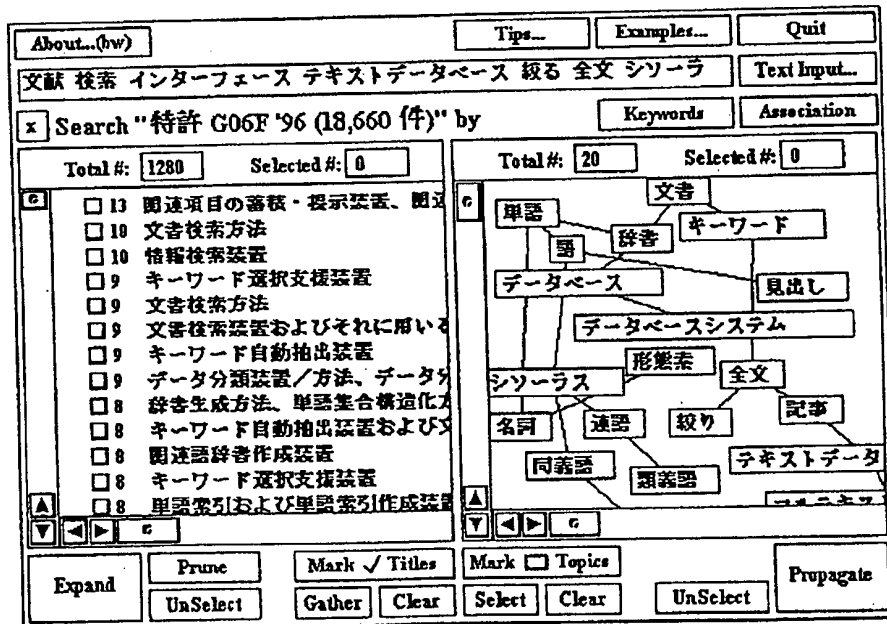 About...(hw) Tips... Examples... Quit
文献 検索 インターフェース テキストデータベース 絞る 全文 シソーラ Text Input...
x Search "特許 G06F '96 (18,660 件)" by Keywords Association
Total #: 1280 Selected #: 0
13 関連項目の蓄積・提示装置、関連
10 文書検索方法
10 情報検索装置
9 キーワード選択支援装置
9 文書検索方法
9 文書検索装置およびそれに用いる
9 キーワード自動抽出装置
9 データ分類装置/方法、データ分
8 辞書生成方法、単語集合構造化方
8 キーワード自動抽出装置および文
8 関連語辞書作成装置
8 キーワード選択支援装置
8 単語索引および単語索引作成装置
Total #: 20 Selected #: 0
文書
単語 キーワード
語 辞書
データベース 見出し
データベースシステム
形態素
シソーラス 全文
名詞 連語 絞り 記事
同義語 類義語 テキストデータ
Expand Prune Mark ✓ Titles Mark Topics Propagate
UnSelect Gather Clear Select Clear UnSelect